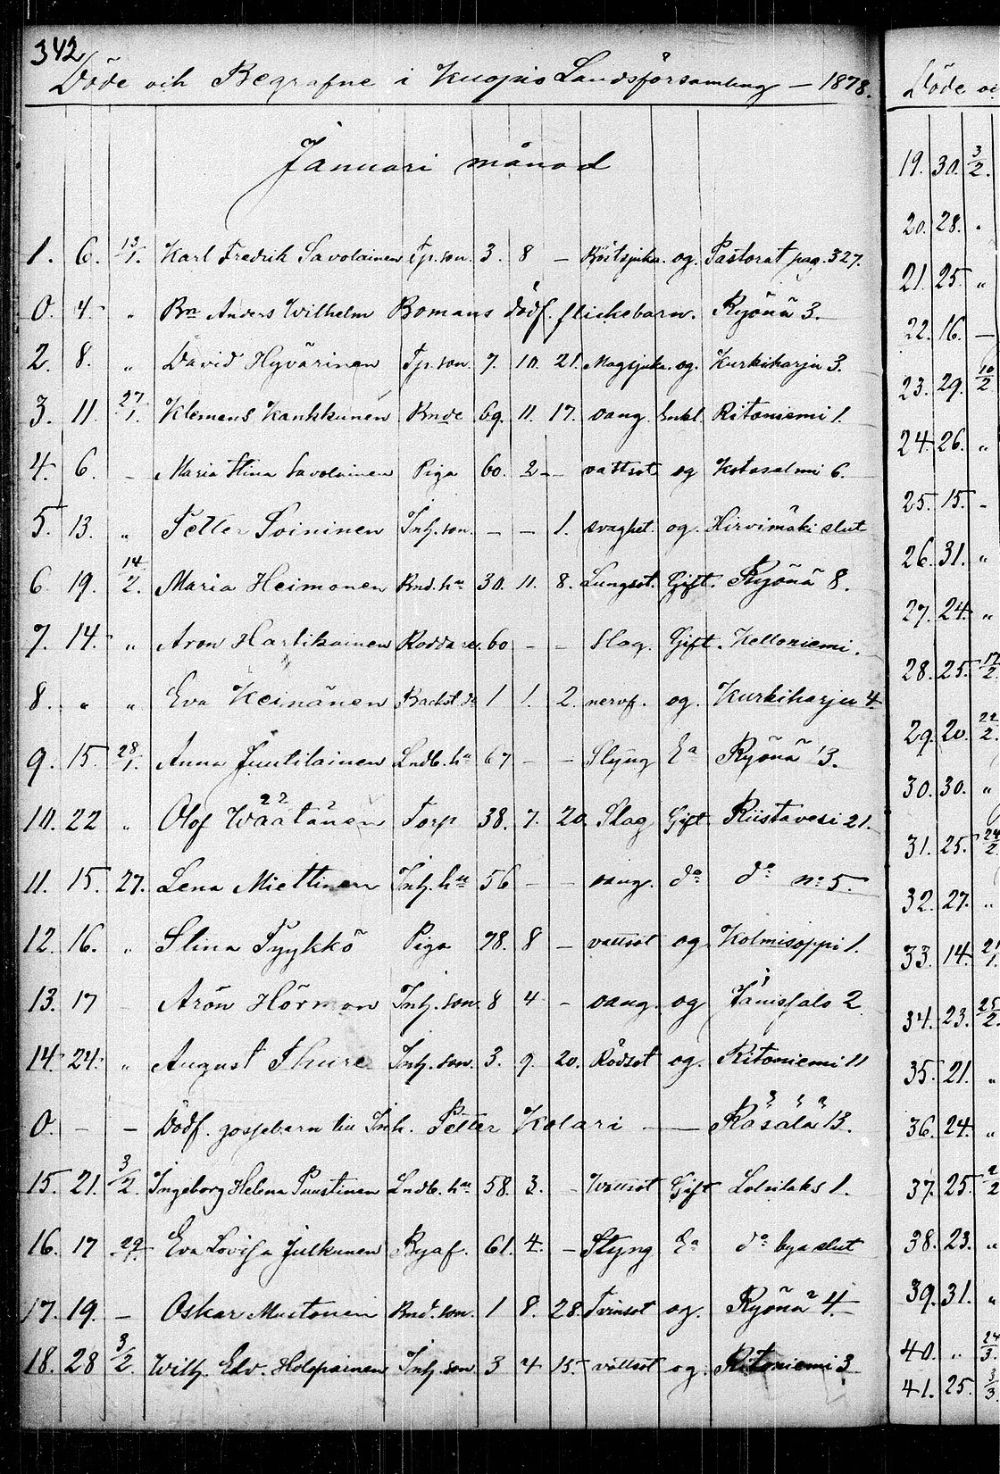 342
Döde och Begrafne i Kuopio Landsförsamling — 1878.
Januari månad
1. 6. 13/1. Karl Fredrik Savolainen Tp. son. 3. 8 — Röstsjuka og. Pastorat pag. 327.
0. 4. " Bn Anders Wilhelm Bomans dödf. flickebarn. Ryönä 3.
2. 8. " David Hyvärinen Tp. son. 7. 10. 21. Magsjuka. og. Kurkiharju 3.
3. 11. 27/1. Klemens Kankkunen Bnde 69. 11. 17. Enkl. Ritoniemi 1.
4. 6. — Maria Stina Savolainen Piga 60. 2 — vattsot og Kotasalmi 6.
5. 13. " Petter Soininen Inh. son. — — 1. svaghet og. Hirvimäki slut
6. 19. 14/2. Maria Heimonen Bnd. hu 30. 11. 8. Lungsot. Gift. Ryönä 8.
7. 14. " Aron Hartikainen 60 — — Slag. Gift. Kelloniemi.
8. " " Eva Heinänen 1 1. 2. nervf. og. Kurkiharju 4
9. 15. 28/1. Anna Juutilainen Lndb. hu 67 — — Styng Ea Ryönä 3.
10. 22 " Olof Wäätänen Torp 38. 7. 20. Slag Gift. Riistavesi 21.
11. 15. 27. Lena Miettinen Inh. hu 56 — — do do no 5.
12. 16. " Stina Tyykkö Piga 78. 8 — vattsot og Kolmisoppi 1.
13. 17 — Aron Hörman Inh. son. 8 4 — og Jänissalo 2
14. 24. " August Thure Inh. son. 3. 9. 20. Rödsot og. Ritoniemi 11
0. — — Dödf. gossebarn till Inh. Petter Kolari — Räsälä 13.
15. 21. 3/2. Ingeborg Helena Puustinen Lndb. hu 58. 3. — Wattsot Gift 1.
16. 17 Eva Lovisa Julkunen 61. 4. — Styng Ea do bya slut
17. 19. — Oskar Bnd. son. 1 8. 28. og. Ryönä 4
18. 28 3/2. Wilh. Edv. Holopainen Inh. son 3 4 15. vattsot og. Ritoniemi 3
Döde
19. 30. 3/2.
20. 28. "
21. 25. "
22. 16. —
23. 29. 10/2
24. 26. "
25. 15. —
26. 31. "
27. 24. "
28. 25. 17/2
29. 20. 22/2.
30. 30. "
31. 25. 24/2
32. 27. "
33. 14.
34. 23. 25/2.
35. 21. "
36. 24. "
37. 25.
38. 23. "
39. 31. "
40. " 24/3.
41. 25. 3/3.